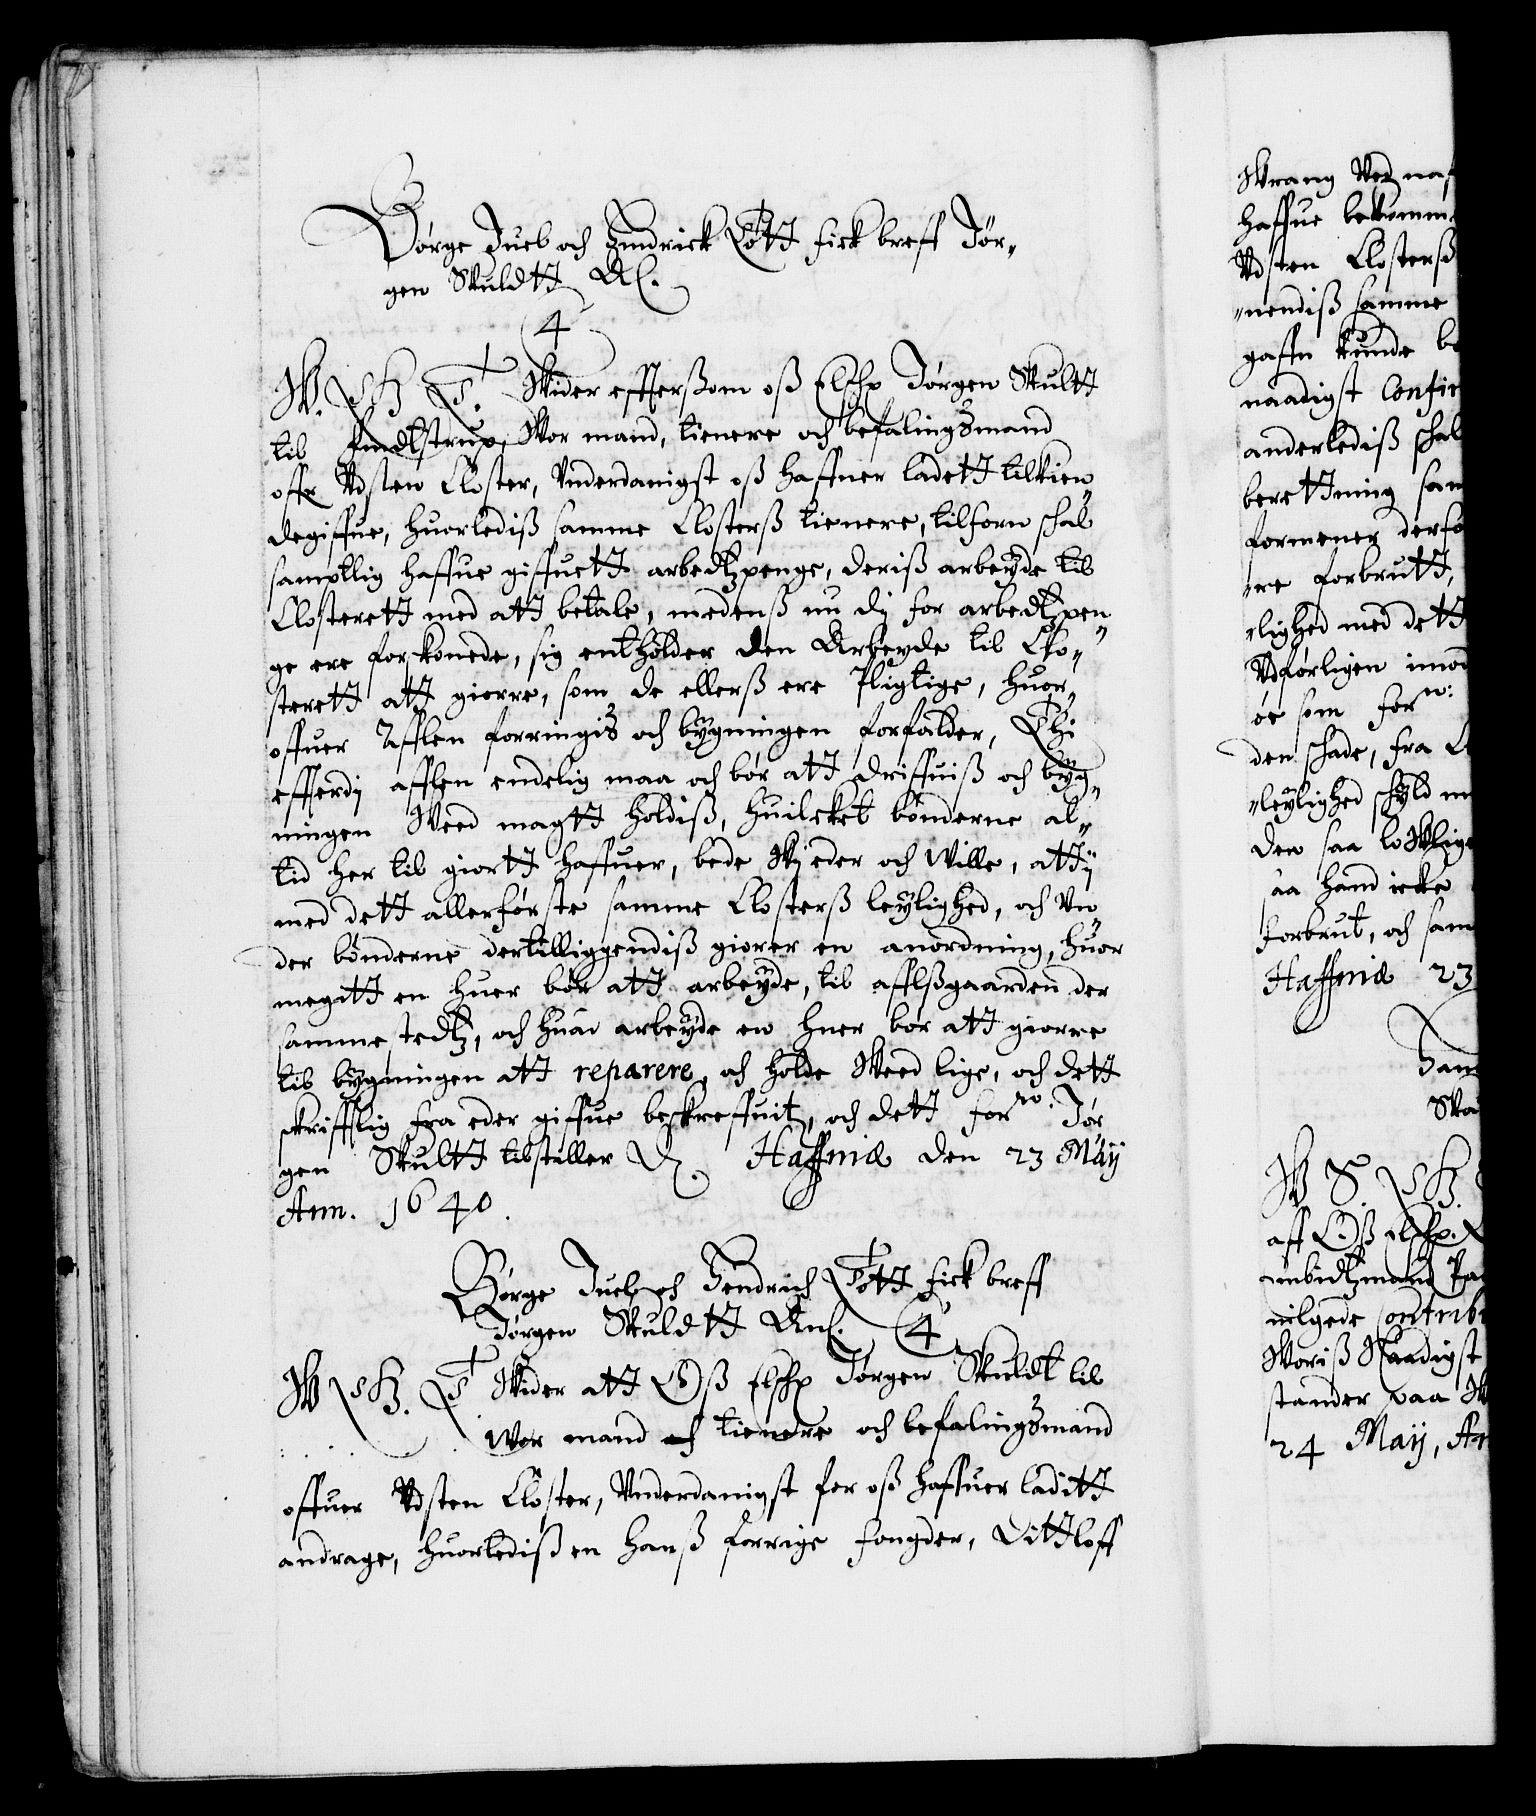 Børge Juel och Hendrick Tott fick breff Jør¬
gen Skuldtt Anl.
4
W. G. T. Wider effterßom oß Elschp Jørgen Skultt
til Findstrup, Wor mand, tienere och befalingsmand
offr Udsten Closter, Vnderdanigst oß haffuer ladett tilkien¬
degiffue, huorlediß samme Closterß tienere, tilforn schal
samptlig haffue giffuett arbedtzpenge, deriß arbeyde til
Closterett med att betale, medenß nu dj for arbedtzpen¬
ge ere forskonede, sig entholder den Arbeyde til Clo¬
sterett att giørre, som de ellerß ere Pligtige, huor¬
offuer Afflen forringis och bygningen forfalder, Thi
effterdj afflen endelig maa och bør att driffuiß och byg¬
ningen Weed magtt holdiß, huilcket bønderne al¬
tid her til giortt haffuer, bede Wj eder och Wille, att I
med dett allerførste samme Closterß leylighed, och Vn¬
der bønderne dertilliggendiß giører en anordning, huor
megitt en huer bør att arbeyde, til afflßgaarden der
sammestedtz, och huad arbeyde en huer bør att giørre
til bygningen att reparere, och holde Weed lige, och dett
skrifftlig fra eder giffue beskreffuit, och dett forn. Jør
gen Skultt tilstiller Haffniæ den 23 Maij
Ann. 1640.
Børge Juel och Hendrich Tott fick breff
Jørgen Skuldtt Anl. 4
W G. T Wider att Oß Elschp Jørgen Skuldt til
Wor mand och tienere och befalingsmand
offuer Udsten Closter, Vnderdanigst for oß haffuer laditt
andrage, huorlediß en hanß forrige fougder, Dittloff
Wrang Ved naf
haffue bekomm
Udsten Closterß
¬nendiß samme
gaffn kunde be
naadigst Confir
anderlediß schal
berettning sam
formener derfo
¬re forbrutt,
¬lighed med dett
Udførligen imod
øe som forn:
den schade, fra
¬leylighed schyld
den saa loWlige
aa hand icke
forbrut, och sam
Haffniæ 23
Han
Ska
W S. G.
aff Oß Elschp.
mbidtzmand Paa
uilgede Contrib
Woriß Naadigst
stander paa
24 Maij, An